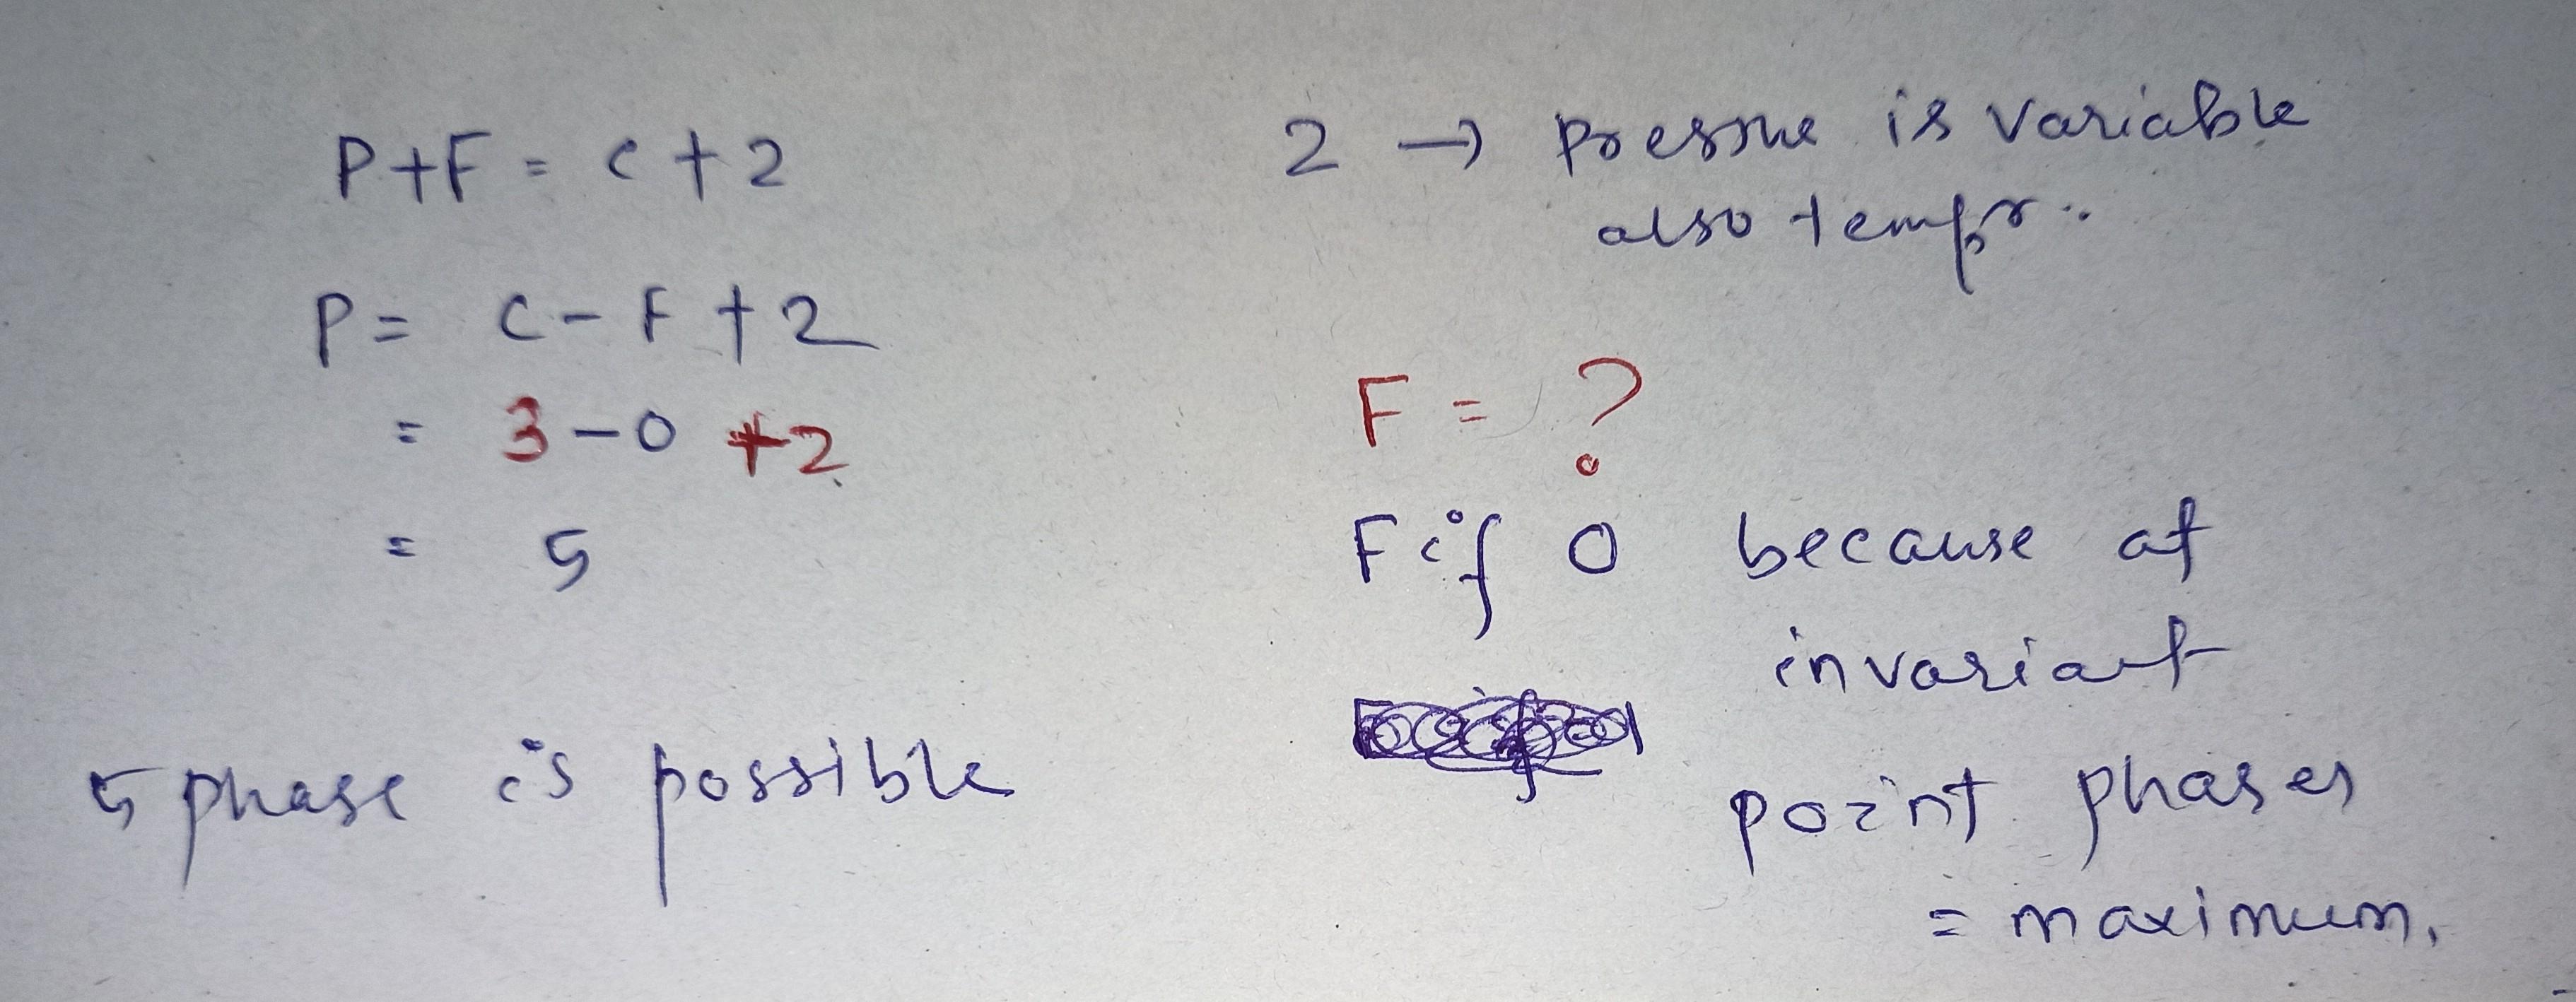 P+F = C+2
P = C-F+2
= 3-0+2
= 5
5 phase is possible
2 → pressure is variable
also tempr..
F = ?
F if 0 because at
invariant
point phases
= maximum.